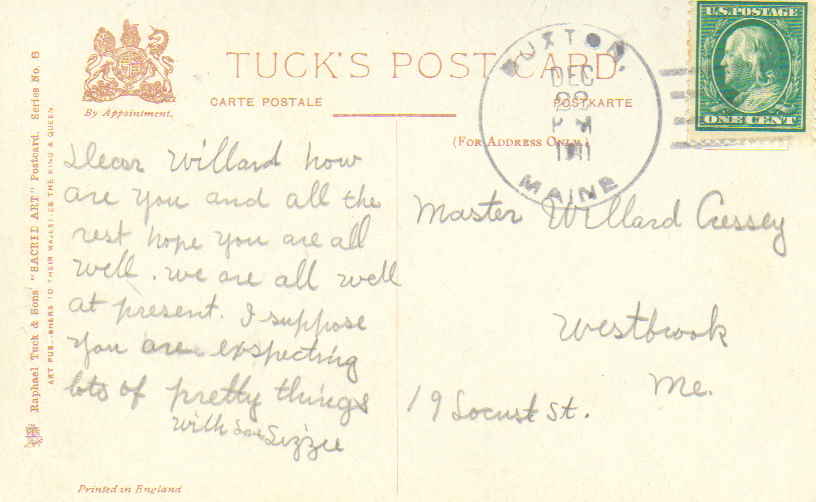 By Appointment.
TUCK'S POST CARD
CARTE POSTALE
POSTKARTE
(FOR ADDRESS ONLY.)
BUXTON.
DEC
P M
1911
MAINE
U.S. POSTAGE
ONE CENT
Dear Willard how
are you and all the
rest hope you are all
well. we are all well
at present. I suppose
you are exspecting
lots of pretty things
with love Lizzie
Master Willard Cressey
Westbrook
Me.
19 Locust St.
Raphael Tuck & Sons' "SACRED ART" Postcard. Series No. 8
ART PUBLISHERS TO THEIR MAJESTIES THE KING & QUEEN
Printed in England